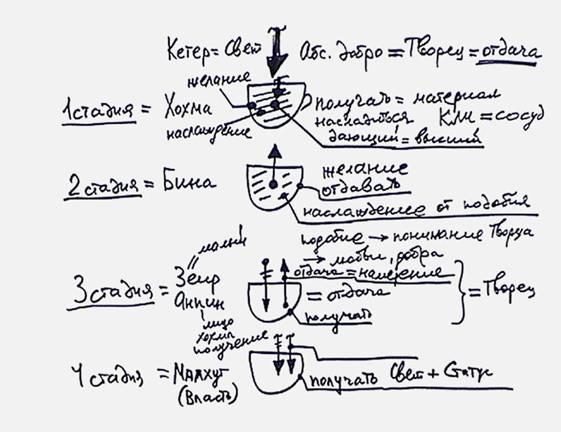 Кетер = Свет Абс. добро = Творец = отдача
желание
1 стадия = Хохма получать = материал
наслаждение насладиться Кли = сосуд
дающий = высший
2 стадия = Бина желание
отдавать
наслаждение от подобия
подобие → понимание Творца
→ любви, добра
малый
3 стадия = Зеир отдача = намерение
Анпин = отдача } = Творец
лицо получать
хохма
получение
4 стадия = Малхут получать Свет + Статус
(Власть)